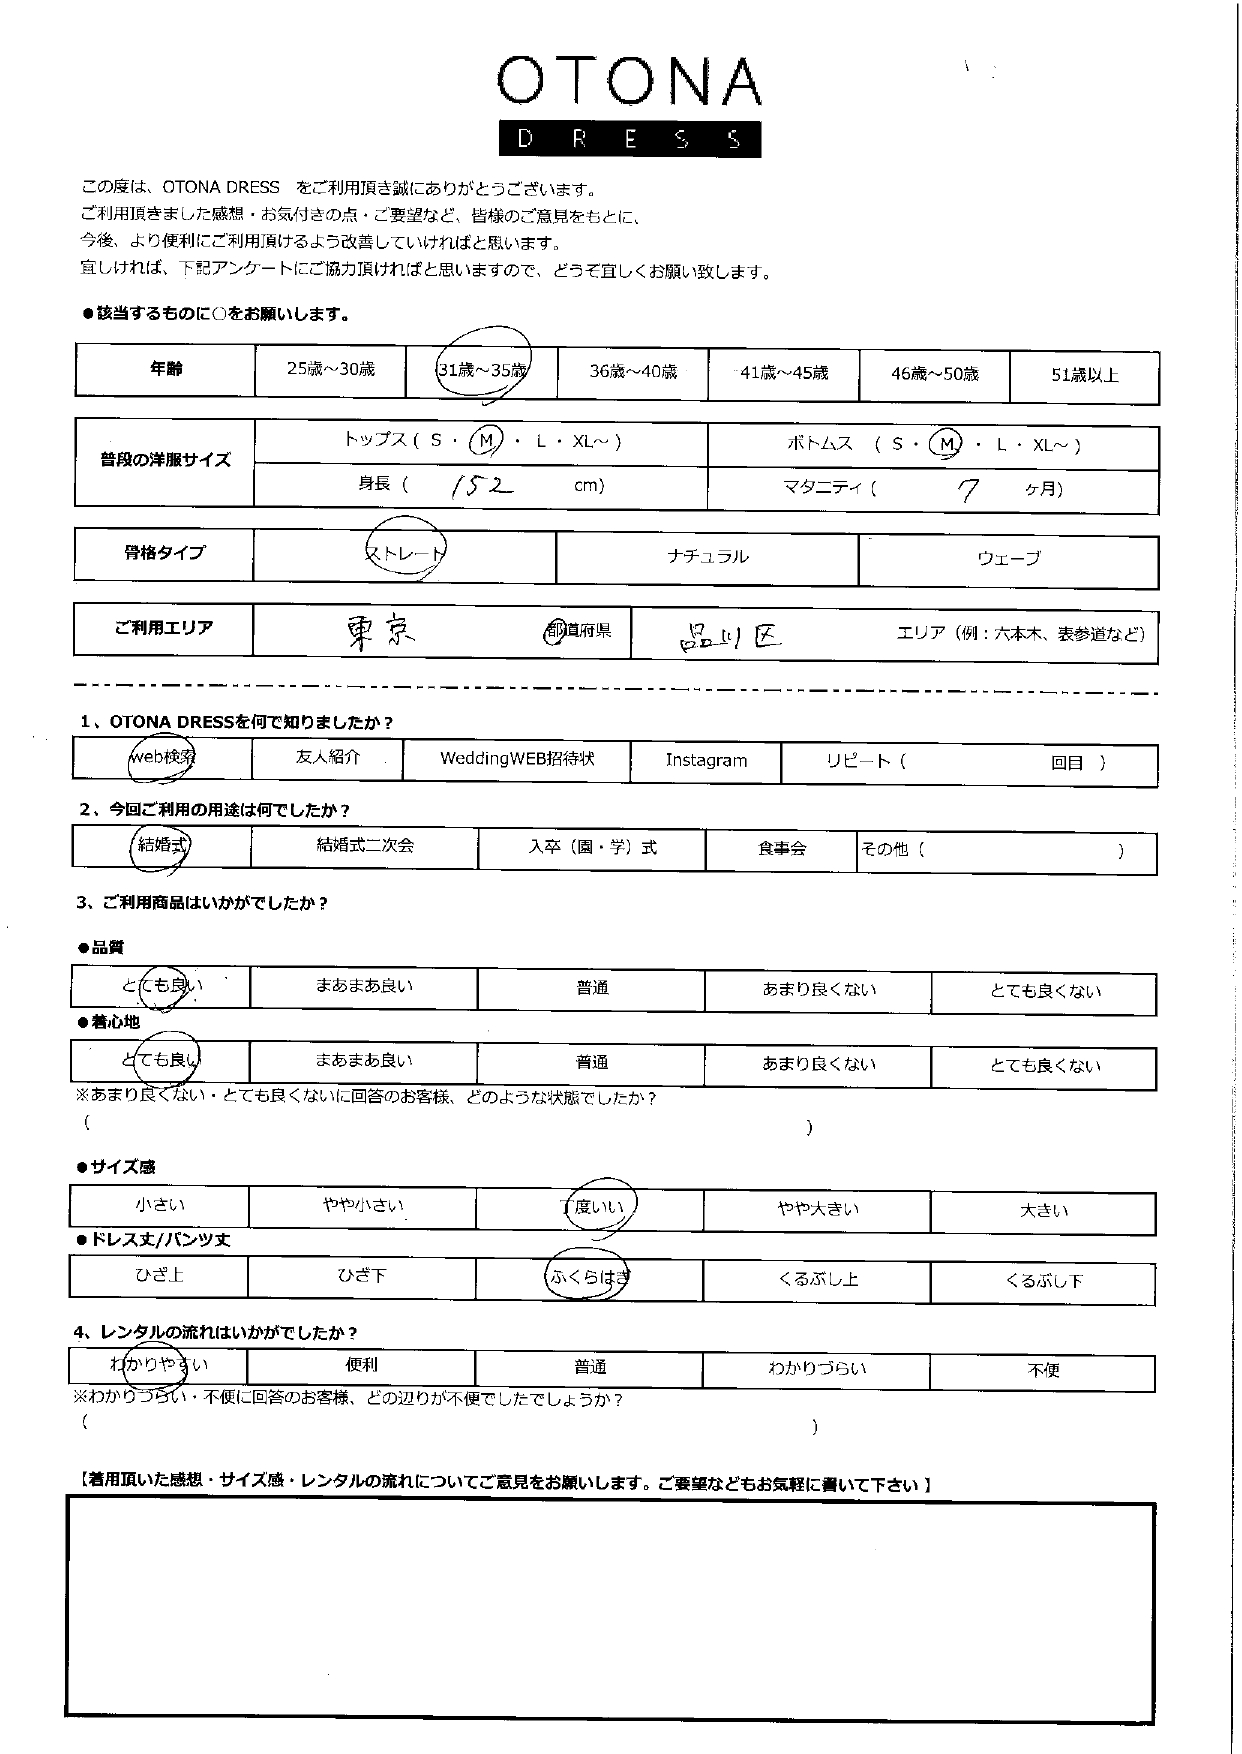 OTONA
DRESS
この度は、OTONA DRESS をご利用頂き誠にありがとうございます。
ご利用頂きました感想・お気付きの点・ご要望など、皆様のご意見をもとに、
今後、より便利にご利用頂けるよう改善していければと思います。
宜しければ、下記アンケートにご協力頂ければと思いますので、どうぞ宜しくお願い致します。
●該当するものに○をお願いします。
年齢 25歳～30歳 31歳～35歳 36歳～40歳 41歳～45歳 46歳～50歳 51歳以上
普段の洋服サイズ トップス ( S ・ M ・ L ・ XL～ ) ボトムス ( S ・ M ・ L ・ XL～ )
身長 ( 152 cm) マタニティ ( 7 ヶ月)
骨格タイプ ストレート ナチュラル ウェーブ
ご利用エリア 東京 都道府県 品川区 エリア（例：六本木、表参道など）
1、OTONA DRESSを何で知りましたか？
web検索 友人紹介 WeddingWEB招待状 Instagram リピート ( 回目 )
2、今回ご利用の用途は何でしたか？
結婚式 結婚式二次会 入卒（園・学）式 食事会 その他 ( )
3、ご利用商品はいかがでしたか？
●品質
とても良い まあまあ良い 普通 あまり良くない とても良くない
●着心地
とても良い まあまあ良い 普通 あまり良くない とても良くない
※あまり良くない・とても良くないに回答のお客様、どのような状態でしたか？
( )
●サイズ感
小さい やや小さい 丁度いい やや大きい 大きい
●ドレス丈/パンツ丈
ひざ上 ひざ下 ふくらはぎ くるぶし上 くるぶし下
4、レンタルの流れはいかがでしたか？
わかりやすい 便利 普通 わかりづらい 不便
※わかりづらい・不便に回答のお客様、どの辺りが不便でしたでしょうか？
( )
【着用頂いた感想・サイズ感・レンタルの流れについてご意見をお願いします。ご要望などもお気軽に書いて下さい】